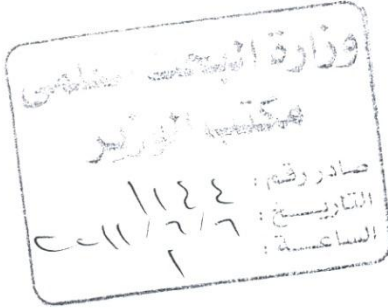 وزارة البحث العلمى
مكتب الوزير
صادر رقم : ١١٤٤
التاريــخ : ٢٠١١/٦/٦
الساعــة : ١